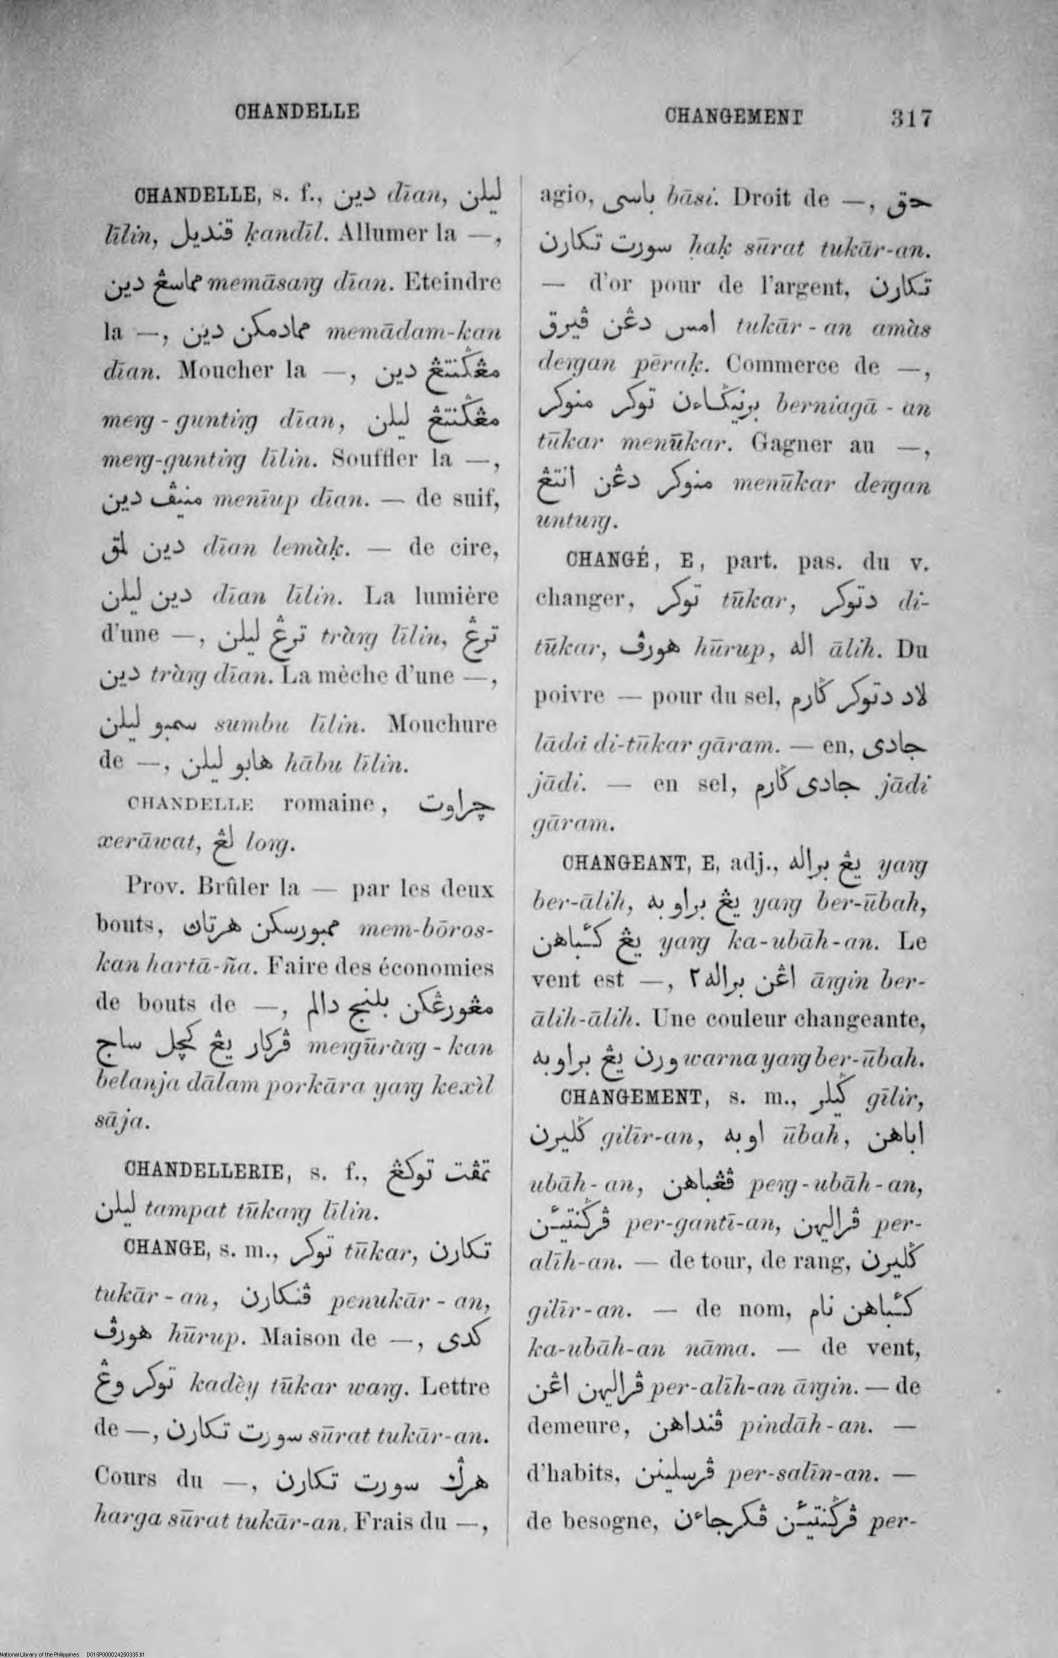 CHANDELLE
CHANGEMENT 317
CHANDELLE, s. f., دين dīan, ليلن
līlin, قنديل ḳandīl. Allumer la —,
مماسڠ دين memāsaŋ dīan. Eteindre
la —, ممادمكن دين memādam-kan
dīan. Moucher la —, مڠڬنتڠ دين
meŋ-guntiŋ dīan, مڠڬنتڠ ليلن
meŋ-guntiŋ līlin. Souffler la —,
منيڤ دين menīup dīan. — de suif,
دين لمق dīan lemàḳ. — de cire,
دين ليلن dīan līlin. La lumière
d'une —, ترڠ ليلن tràŋ līlin, ترڠ
دين tràŋ dīan. La mèche d'une —,
سمبو ليلن sumbu līlin. Mouchure
de —, هابو ليلن hābu līlin.
CHANDELLE romaine, چراوت
xerāwat, لڠ loŋ.
Prov. Brûler la — par les deux
bouts, ممبورسكن هرتاڽ mem-bōros-
kan hartā-ña. Faire des économies
de bouts de —, مڠورڠكن بلنج دالم
ڤركار يڠ كچل ساج meŋūràŋ-kan
belanja dālam porkāra yaŋ kexìl
sāja.
CHANDELLERIE, s. f., تمڤت توكڠ
ليلن tampat tūkaŋ līlin.
CHANGE, s. m., توكر tūkar, تكارن
tukār-an, ڤنكارن penukār-an,
هورڤ hūrup. Maison de —, كدى
توكر وڠ kadèy tūkar waŋ. Lettre
de —, سورت تكارن sūrat tukār-an.
Cours du —, هرڬ سورت تكارن
harga sūrat tukār-an. Frais du —,
agio, باسى bāsi. Droit de —, حق
سورت تكارن ḥaḳ sūrat tukār-an.
— d'or pour de l'argent, تكارن
امس دڠن ڤيرق tukār-an amàs
deŋan pēraḳ. Commerce de —,
برنيڬاءن توكر منوكر berniagā-an
tūkar menūkar. Gagner au —,
منوكر دڠن انتڠ menūkar deŋan
untuŋ.
CHANGÉ, E, part. pas. du v.
changer, توكر tūkar, دتوكر di-
tūkar, هورڤ hūrup, اله ālih. Du
poivre — pour du sel, لاد دتوكر ڬارم
lāda di-tūkar gāram. — en, جادى
jādi. — en sel, جادى ڬارم jādi
gāram.
CHANGEANT, E, adj., يڠ براله yaŋ
ber-ālih, يڠ براوبه yaŋ ber-ūbah,
يڠ كئباهن yaŋ ka-ubāh-an. Le
vent est —, اڠن براله٢ āŋin ber-
ālih-ālih. Une couleur changeante,
ورن يڠ براوبه warna yaŋ ber-ūbah.
CHANGEMENT, s. m., ڬيلر gīlir,
ڬليرن gilīr-an, اوبه ūbah, اباهن
ubāh-an, ڤڠباهن peŋ-ubāh-an,
ڤرڬنتيئن per-gantī-an, ڤراليهن per-
alīh-an. — de tour, de rang, ڬليرن
gilīr-an. — de nom, كئباهن نام
ka-ubāh-an nāma. — de vent,
ڤراليهن اڠن per-alīh-an āŋin. — de
demeure, ڤنداهن pindāh-an. —
d'habits, ڤرسلينن per-salīn-an. —
de besogne, ڤرڬنتيئن ڤكرجاءن per-
National Library of the Philippines